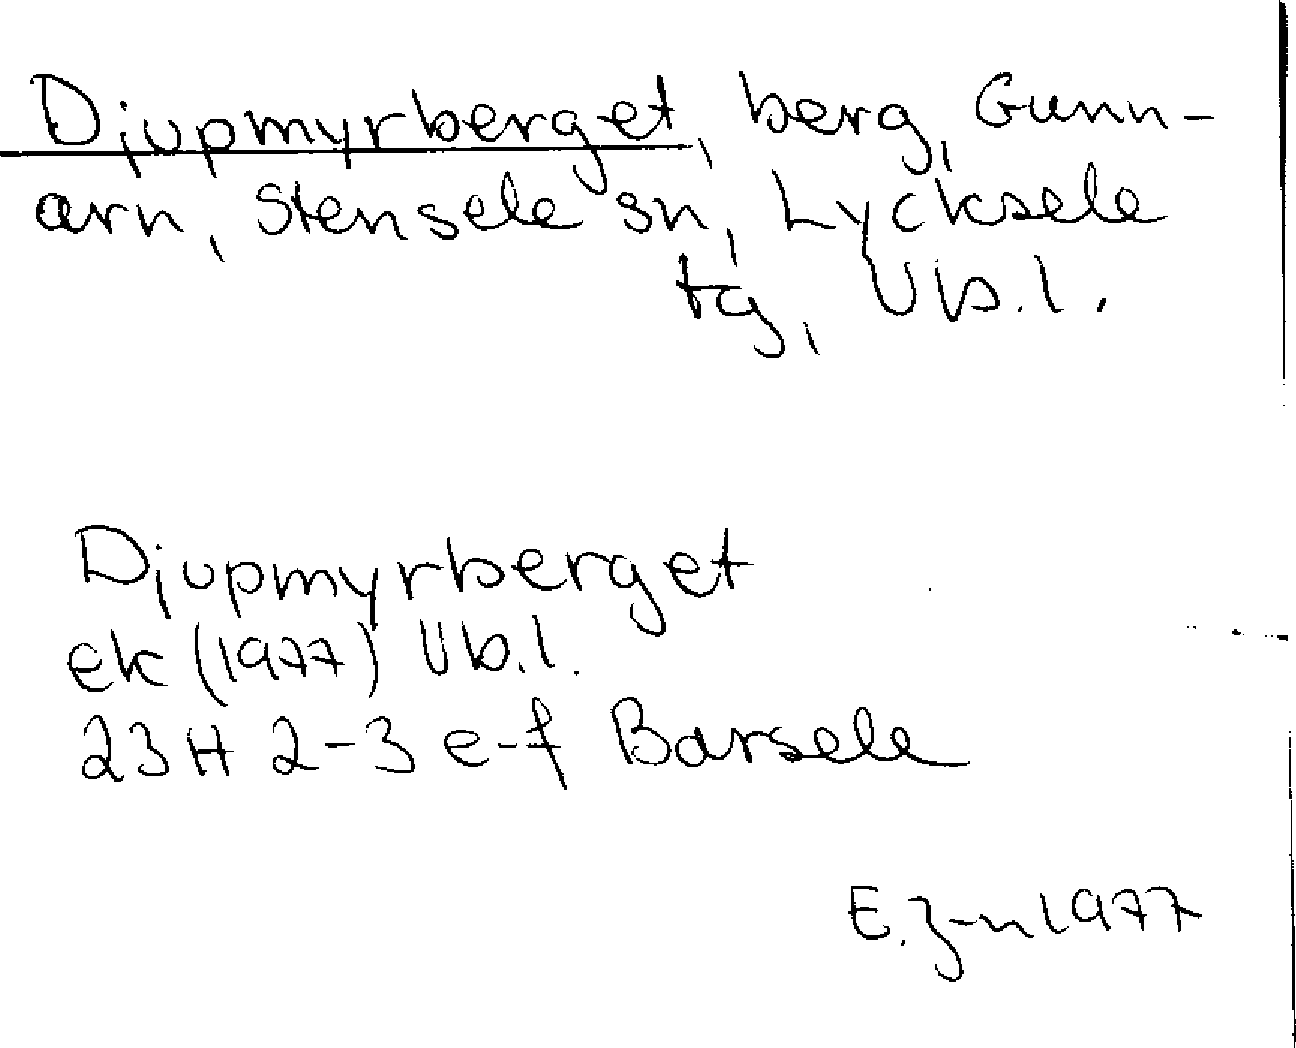 Djupmyrberget, berg, Gunn-
arn, Stensele sn, Lycksele
tg, Vb.l.
Djupmyrberget
ek (1977) Vb.l.
23H 2-3 e-f Barsele
E. Z-n 1977